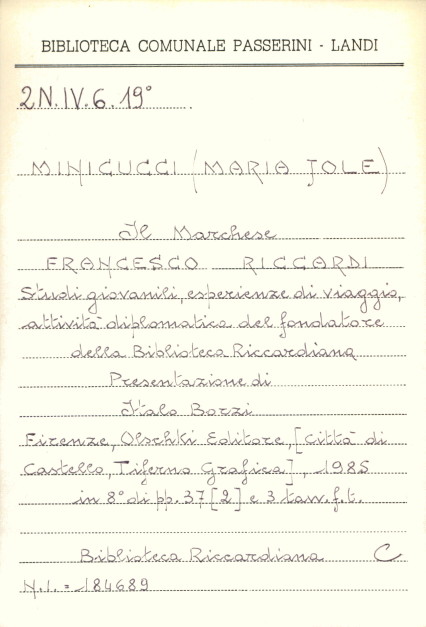 BIBLIOTECA COMUNALE PASSERINI - LANDI
2N.IV.6.19°
MINICUCCI (MARIA JOLE)
Il Marchese
FRANCESCO RICCARDI
Studi giovanili, esperienze di viaggio,
attività diplomatica del fondatore
della Biblioteca Riccardiana
Presentazione di
Italo Borzi
Firenze, Olschki Editore, [Città di
Castello, Tiferno Grafica], 1985
in 8° di pp. 37 [2] e 3 tavv. f. t.
Biblioteca Riccardiana C
N.I. = 184689